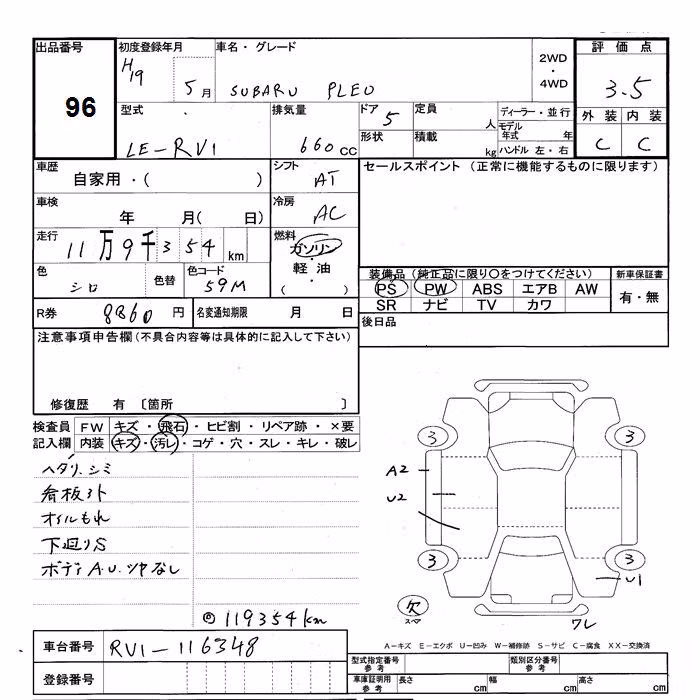 出品番号 初度登録年月 車名・グレード 評価点
96 H19 5月 SUBARU PLEO 2WD・4WD 3.5
型式 排気量 ドア 5 定員 人 ディーラー・並行 外装 内装
LE-RV1 660cc 形状 積載 kg モデル年式 年 ハンドル 左・右 C C
車歴 シフト セールスポイント (正常に機能するものに限ります)
自家用・( ) AT
車検 冷房
年 月( 日) AC
走行 燃料
11万9千354km ガソリン・軽油
色 色替 色コード ( ・ )
シロ 59M
装備品(純正品に限り○をつけてください) 新車保証書
PS PW ABS エアB AW 有・無
SR ナビ TV カワ
R券 8860円 名変通知期限 月 日 後日品
注意事項申告欄(不具合内容等は具体的に記入して下さい)
修復歴 有 〔箇所 〕
検査員 FW キズ・飛石・ヒビ割・リペア跡・×要
記入欄 内装 キズ・汚レ・コゲ・穴・スレ・キレ・破レ
ヘタリ、シミ
看板外ト
オイルもれ
下廻りS
ボディA.U.ツヤなし
119354km
3 3
A2
U2
3 3
U1
欠
スペア
ワレ
車台番号 RV1-116348
登録番号
A−キズ E−エクボ U−凹み W−補修跡 S−サビ C−腐食 XX−交換済
型式指定番号 参考 類別区分番号 参考
車庫証明用 参考 長さ cm 幅 cm 高さ cm